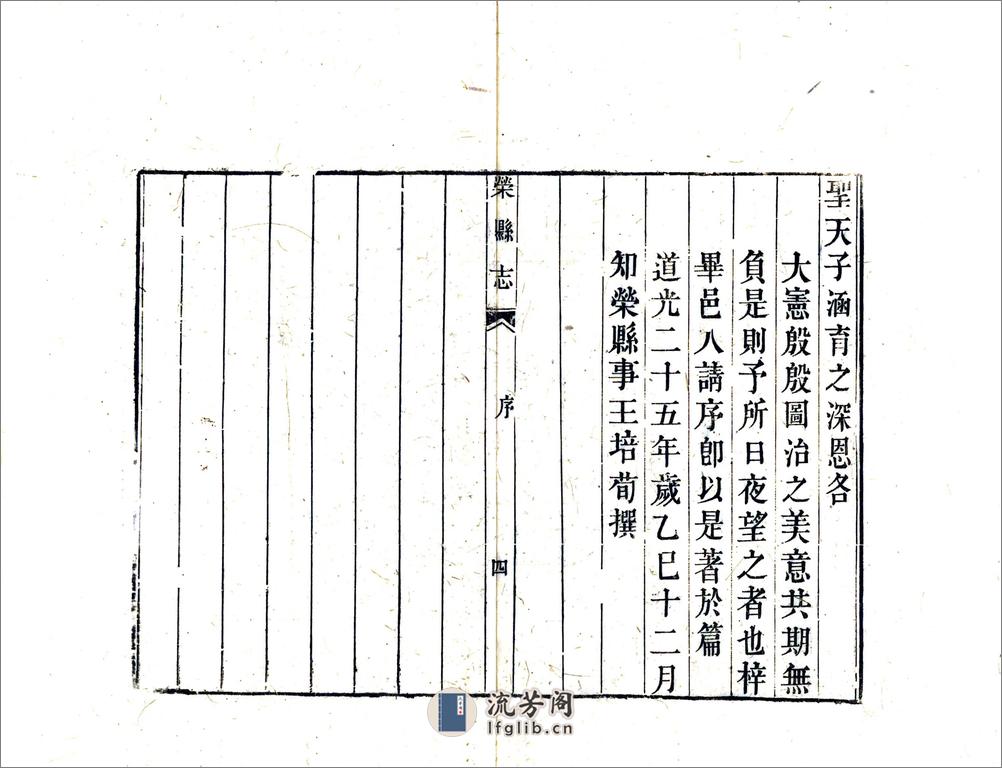 聖天子涵育之深恩各
大憲殷殷圖治之美意共期無
負是則予所日夜望之者也梓
畢邑人請序卽以是著於篇
道光二十五年歲乙巳十二月
知榮縣事王培荀撰
榮縣志
序
四
流芳阁
lfglib.cn